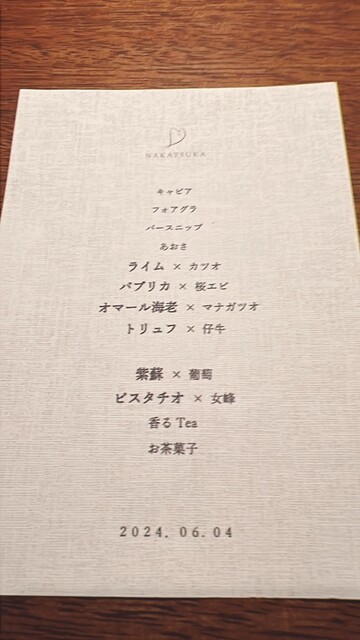 NAKATSUKA
キャビア
フォアグラ
パースニップ
あおさ
ライム × カツオ
パプリカ × 桜エビ
オマール海老 × マナガツオ
トリュフ × 仔牛
紫蘇 × 葡萄
ピスタチオ × 女峰
香る Tea
お茶菓子
2024. 06. 04